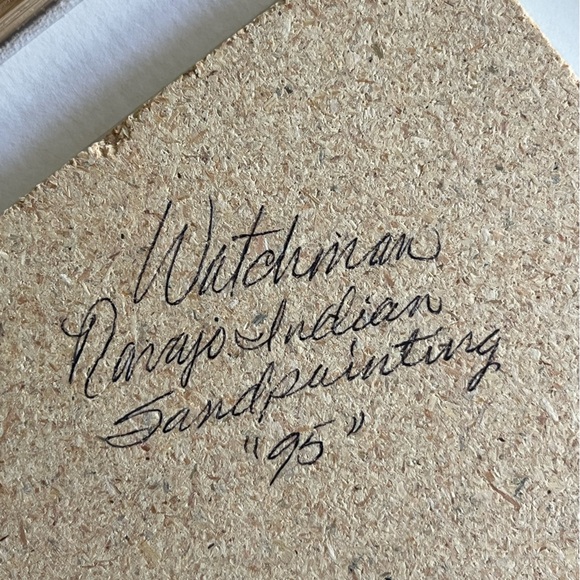 Watchman
Navajo Indian
Sandpainting
"95"